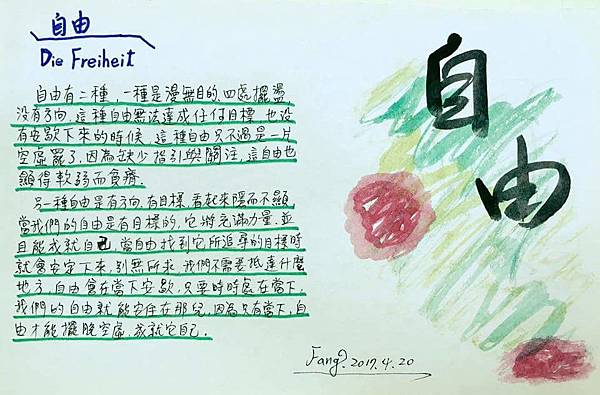 自由
Die Freiheit
自由有二種,一種是漫無目的、四處擺盪,
沒有方向,這種自由無法達成任何目標,也沒
有安歇下來的時候,這種自由只不過是一片
空虛罷了,因為缺少指引與關注,這自由也
顯得軟弱而貧瘠。
另一種自由是有方向,有目標,看起來隱而不顯,
當我們的自由是有目標的,它將充滿力量,並
且能成就自己,當自由找到它所追尋的目標時
就會安定下來,別無所求,我們不需要抵達什麼
地方,自由會在當下安歇,只要時時處在當下,
我們的自由就能安住在那兒,因為只有當下,自
由才能擺脫空虛,成就它自己.
自由
Fang. 2017.4.20